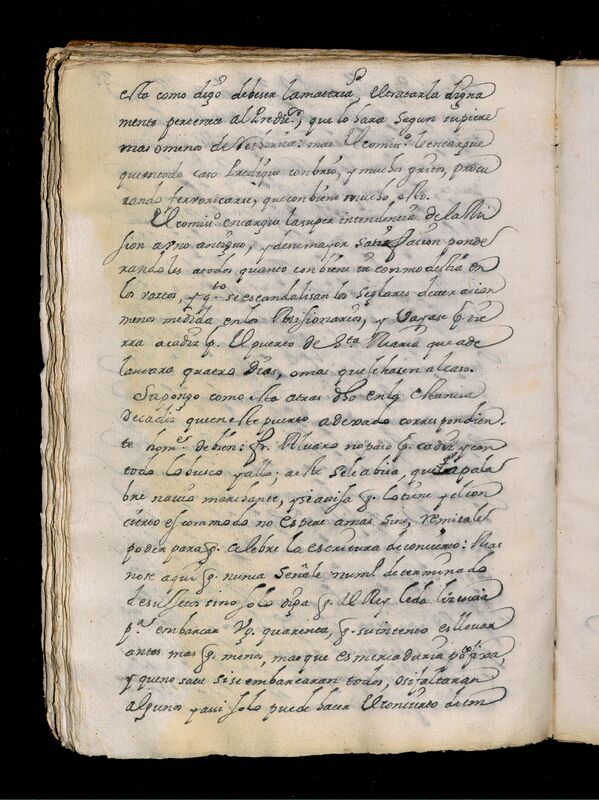 esta como digo debeser la materia, el tratarla digna
mente pertenece al Predic.r, que lo hara segun supiere
mas o menos de Rethorica: mas el comis.o le encargue
que en todo caso Predique con brio, y muchos gritos, procu
rando terroricarse, que conbiene mucho, esto.
El comis.o encargue la super intendencia de la Mi
sion a uno antiguo, y de su mayor satisfacion, ponde
randoles a todos quanto conbiene en con modestia en
los ratos, y q.to se escandalisan los seglares de ver acion
menos medida en los Misionarios, y Vayase
rra a cadiz p. El puerto de S.ta Maria que ade
lantara quatro dias, o mas que le hasen al caso.
Supongo como esta atras d.ho en la estancia
de cadiz que en este puerto a dexado correspondien
te hom.e de bien: fr. Alvaro no paro q. cadiz y con
todo lo busco y allo; a este sele abisa, que la pala
bre navio marchante, y si avisa q. lo tiene y el con
cierto es commodo no espere a mas sino, remitale
poder para q. celebre la escritura de concierto: Mas
note aqui q. nunca señale num.o determinado
de sujetos sino solo diga q. El Rey le da licencia
p.a embarcar V.g. quarenta, q. su intento es llevar
antes mas q. menos, mas que es mercaduria
y que no save si se embarcaran todos, o si faltaran
algunos y aui solo puede hacer el concierto de con